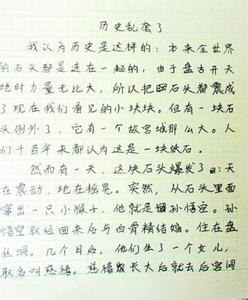 历史乱套了
我认为历史是这样的：本来全世界
的石头都是连在一起的，由于盘古开天
地时力量无比大，所以把石头都震成
了现在我们看见的小块块。但有一块石
头例外了，它有一个故宫城那么大。人
们千百年来都认为这是一块妖石。
然而有一天，这块石头爆发了：天
在震动，地在摇晃。突然，从石头里面
窜出一只小猴子，他就是孙悟空。孙
悟空取经回来后与白骨精结婚。住在盘
丝洞。几个月后，他们生了一个女儿，
取名叫慈禧。慈禧长大后就去后宫间